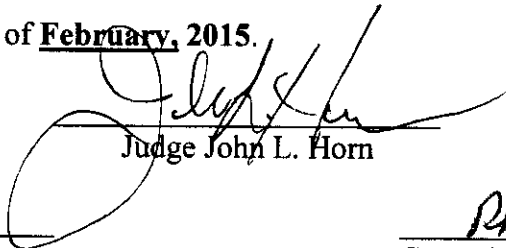 of February, 2015.
Judge John L. Horn